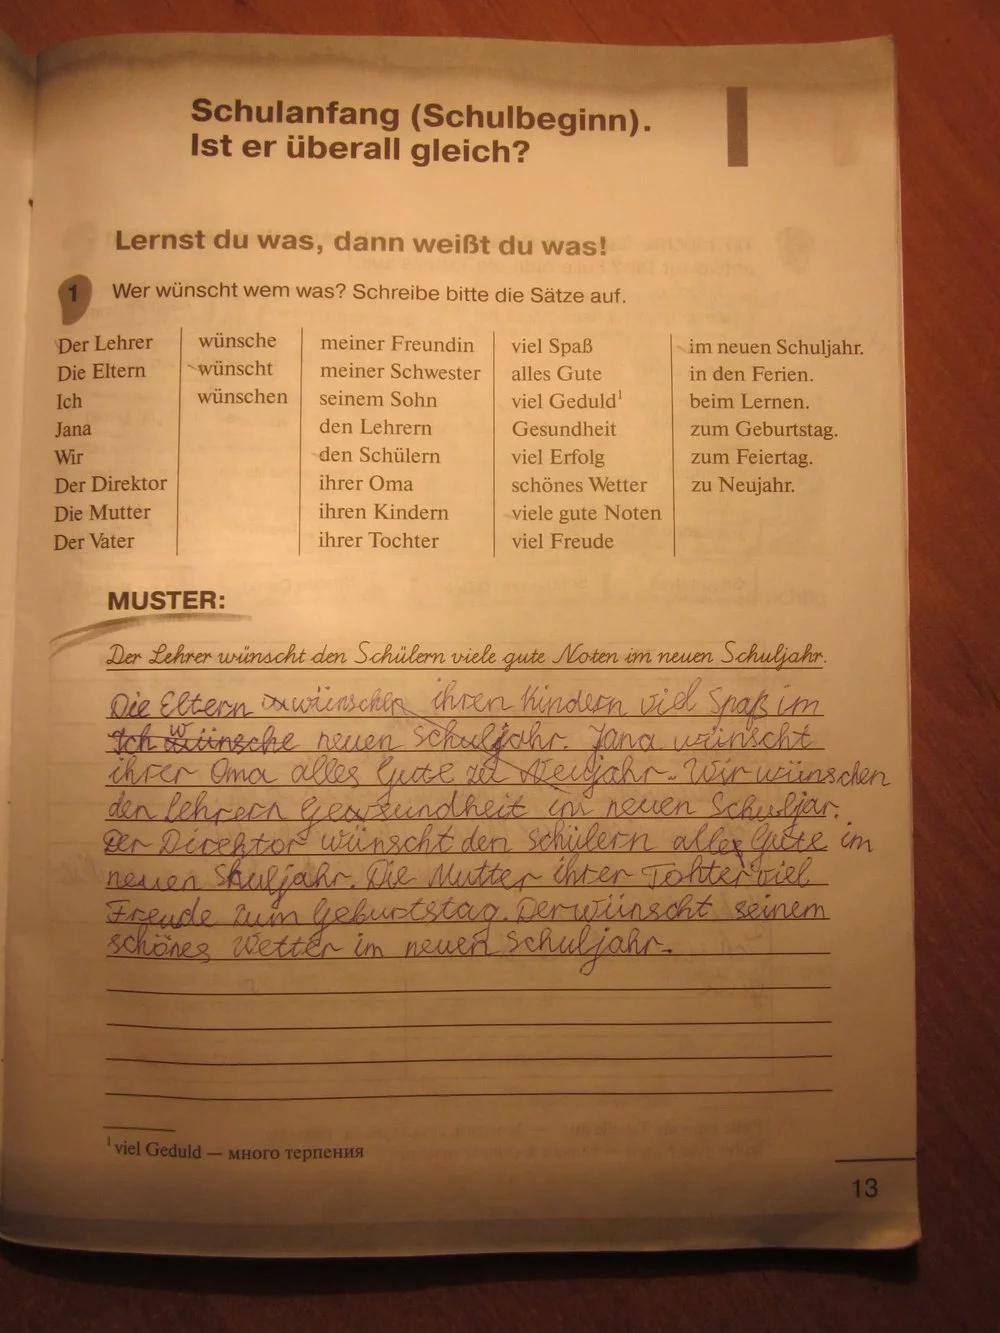 Schulanfang (Schulbeginn).
Ist er überall gleich?
Lernst du was, dann weißt du was!
1 Wer wünscht wem was? Schreibe bitte die Sätze auf.
Der Lehrer wünsche meiner Freundin viel Spaß im neuen Schuljahr.
Die Eltern wünscht meiner Schwester alles Gute in den Ferien.
Ich wünschen seinem Sohn viel Geduld¹ beim Lernen.
Jana den Lehrern Gesundheit zum Geburtstag.
Wir den Schülern viel Erfolg zum Feiertag.
Der Direktor ihrer Oma schönes Wetter zu Neujahr.
Die Mutter ihren Kindern viele gute Noten
Der Vater ihrer Tochter viel Freude
MUSTER:
Der Lehrer wünscht den Schülern viele gute Noten im neuen Schuljahr.
Die Eltern wünschen ihren Kindern viel Spaß im
Ich wünsche neuen Schuljahr. Jana wünscht
ihrer Oma alles Gute zu Neujahr. Wir wünschen
den Lehrern Gesundheit im neuen Schuljar.
Der Direktor wünscht den Schülern alles Gute im
neuen Schuljahr. Die Mutter ihrer Tohter viel
Freude zum Geburtstag. Der wünscht seinem
schönes Wetter im neuen Schuljahr.
¹ viel Geduld — много терпения
13